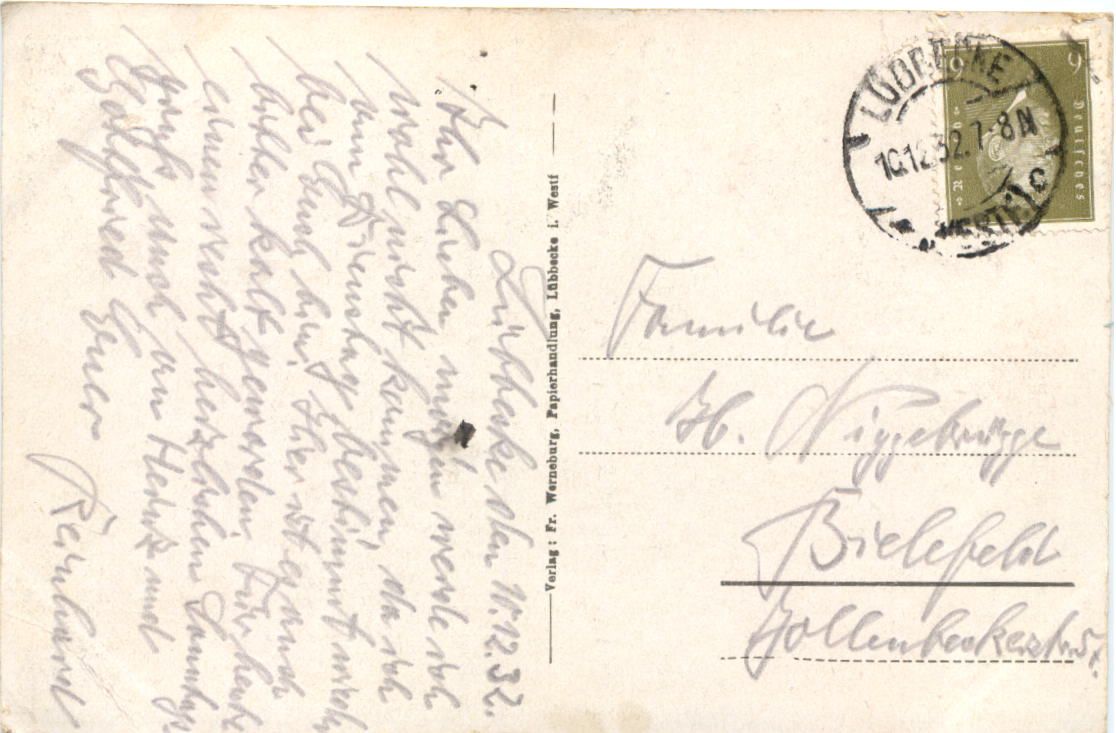 Lübbecke den 10.12.32.
Ihr Lieben morgen werde ich
wohl nicht kommen, da ich
am Dienstag bestimmt
bei Euch bin. Hier ist es auch
bitter kalt geworden. Für heute
einen recht herzlichen Sonntags
gruß auch an Heinz und
Gottfried Euer
Reinhard
Verlag: Fr. Werneburg, Papierhandlung, Lübbecke i. Westf
LÜBBECKE
10.12.32.7-8N
(WESTF.) c
9 9
Deutsches
Reich
Familie
H. Niggebrügge
Bielefeld
Jöllenbeckerstr.